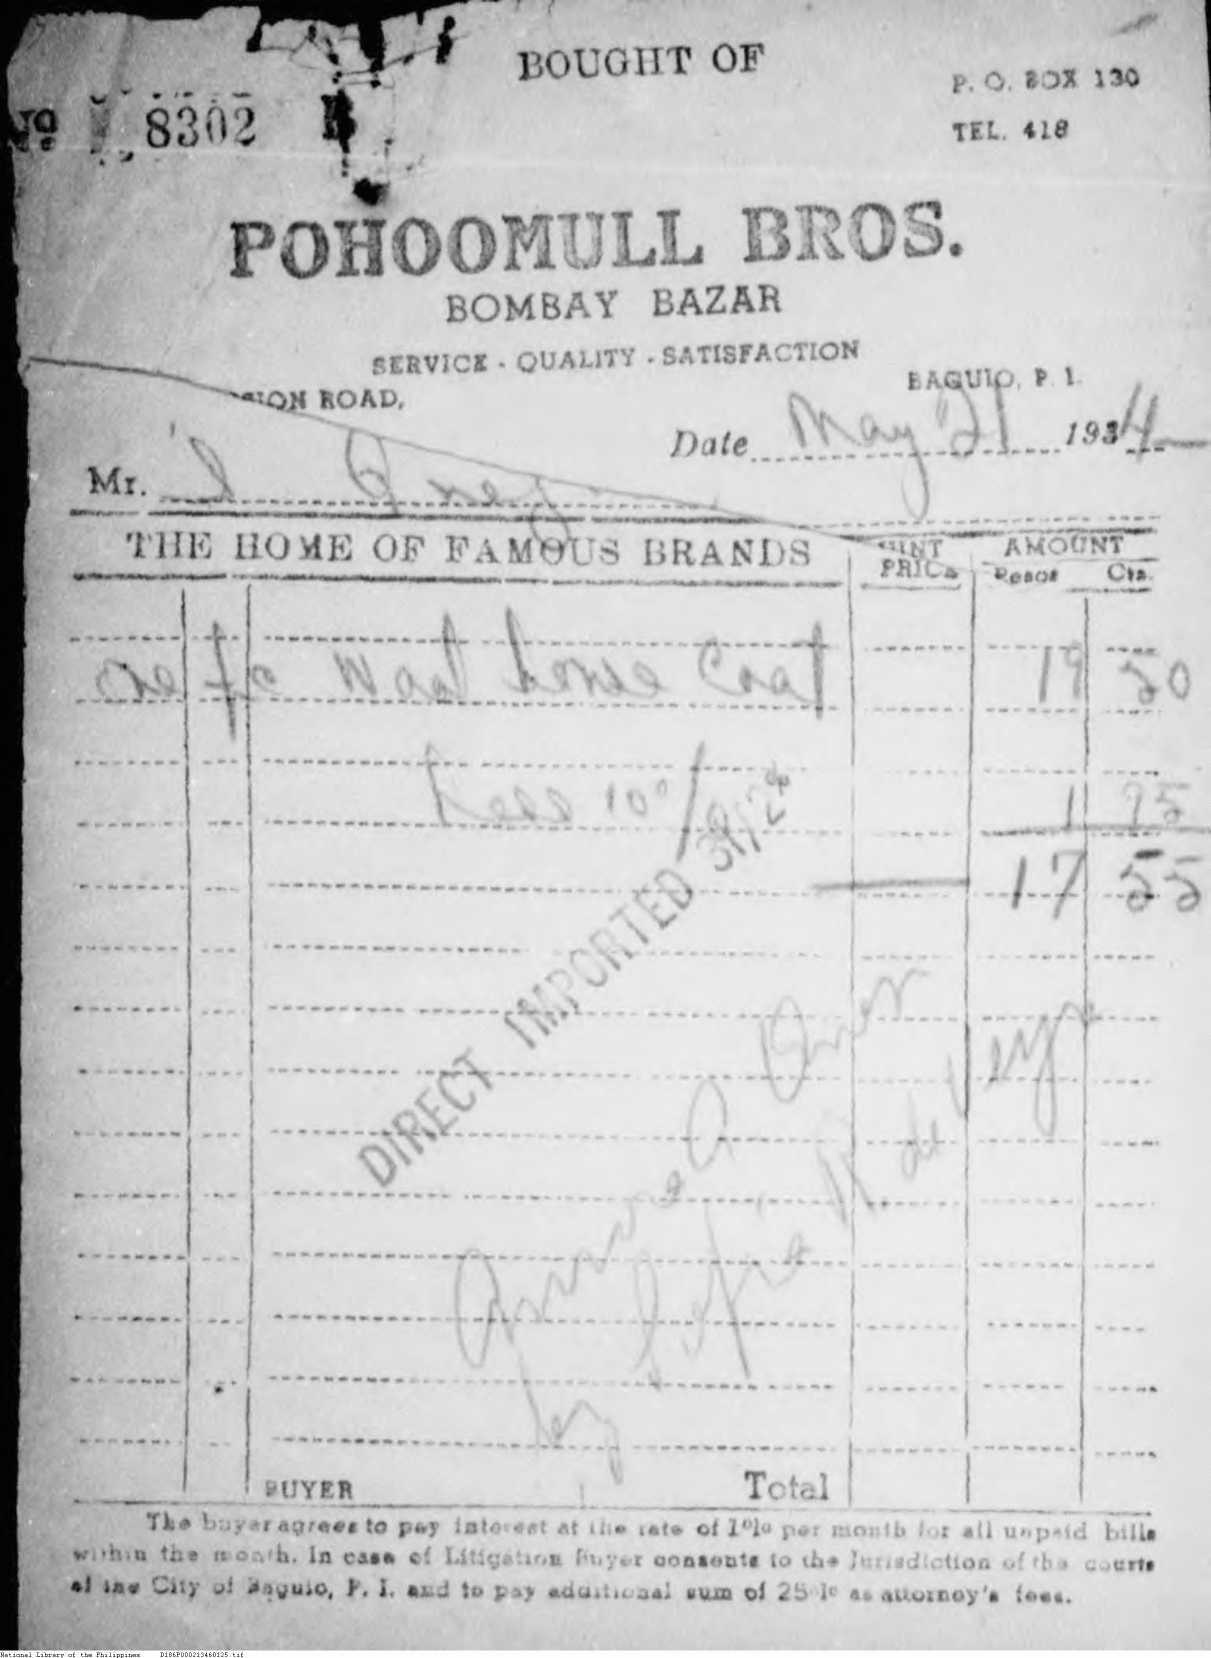 BOUGHT OF
P. O. BOX 130
No 8302
TEL. 418
POHOOMULL BROS.
BOMBAY BAZAR
SERVICE - QUALITY - SATISFACTION
SION ROAD,
BAGUIO, P. I.
Date May 21 1934
Mr.
THE HOME OF FAMOUS BRANDS
MINT PRICE
AMOUNT
Pesos Cts.
one pc Wool house Coat 19 50
Less 10% 1 95
17 55
DIRECT IMPORTED 31/2%
by Sofia R. de Veyra
BUYER Total
The buyer agrees to pay interest at the rate of 1% per month for all unpaid bills
within the month. In case of Litigation Buyer consents to the Jurisdiction of the courts
of the City of Baguio, P. I. and to pay additional sum of 25% as attorney's fees.
National Library of the Philippines D186P000213460125.tif